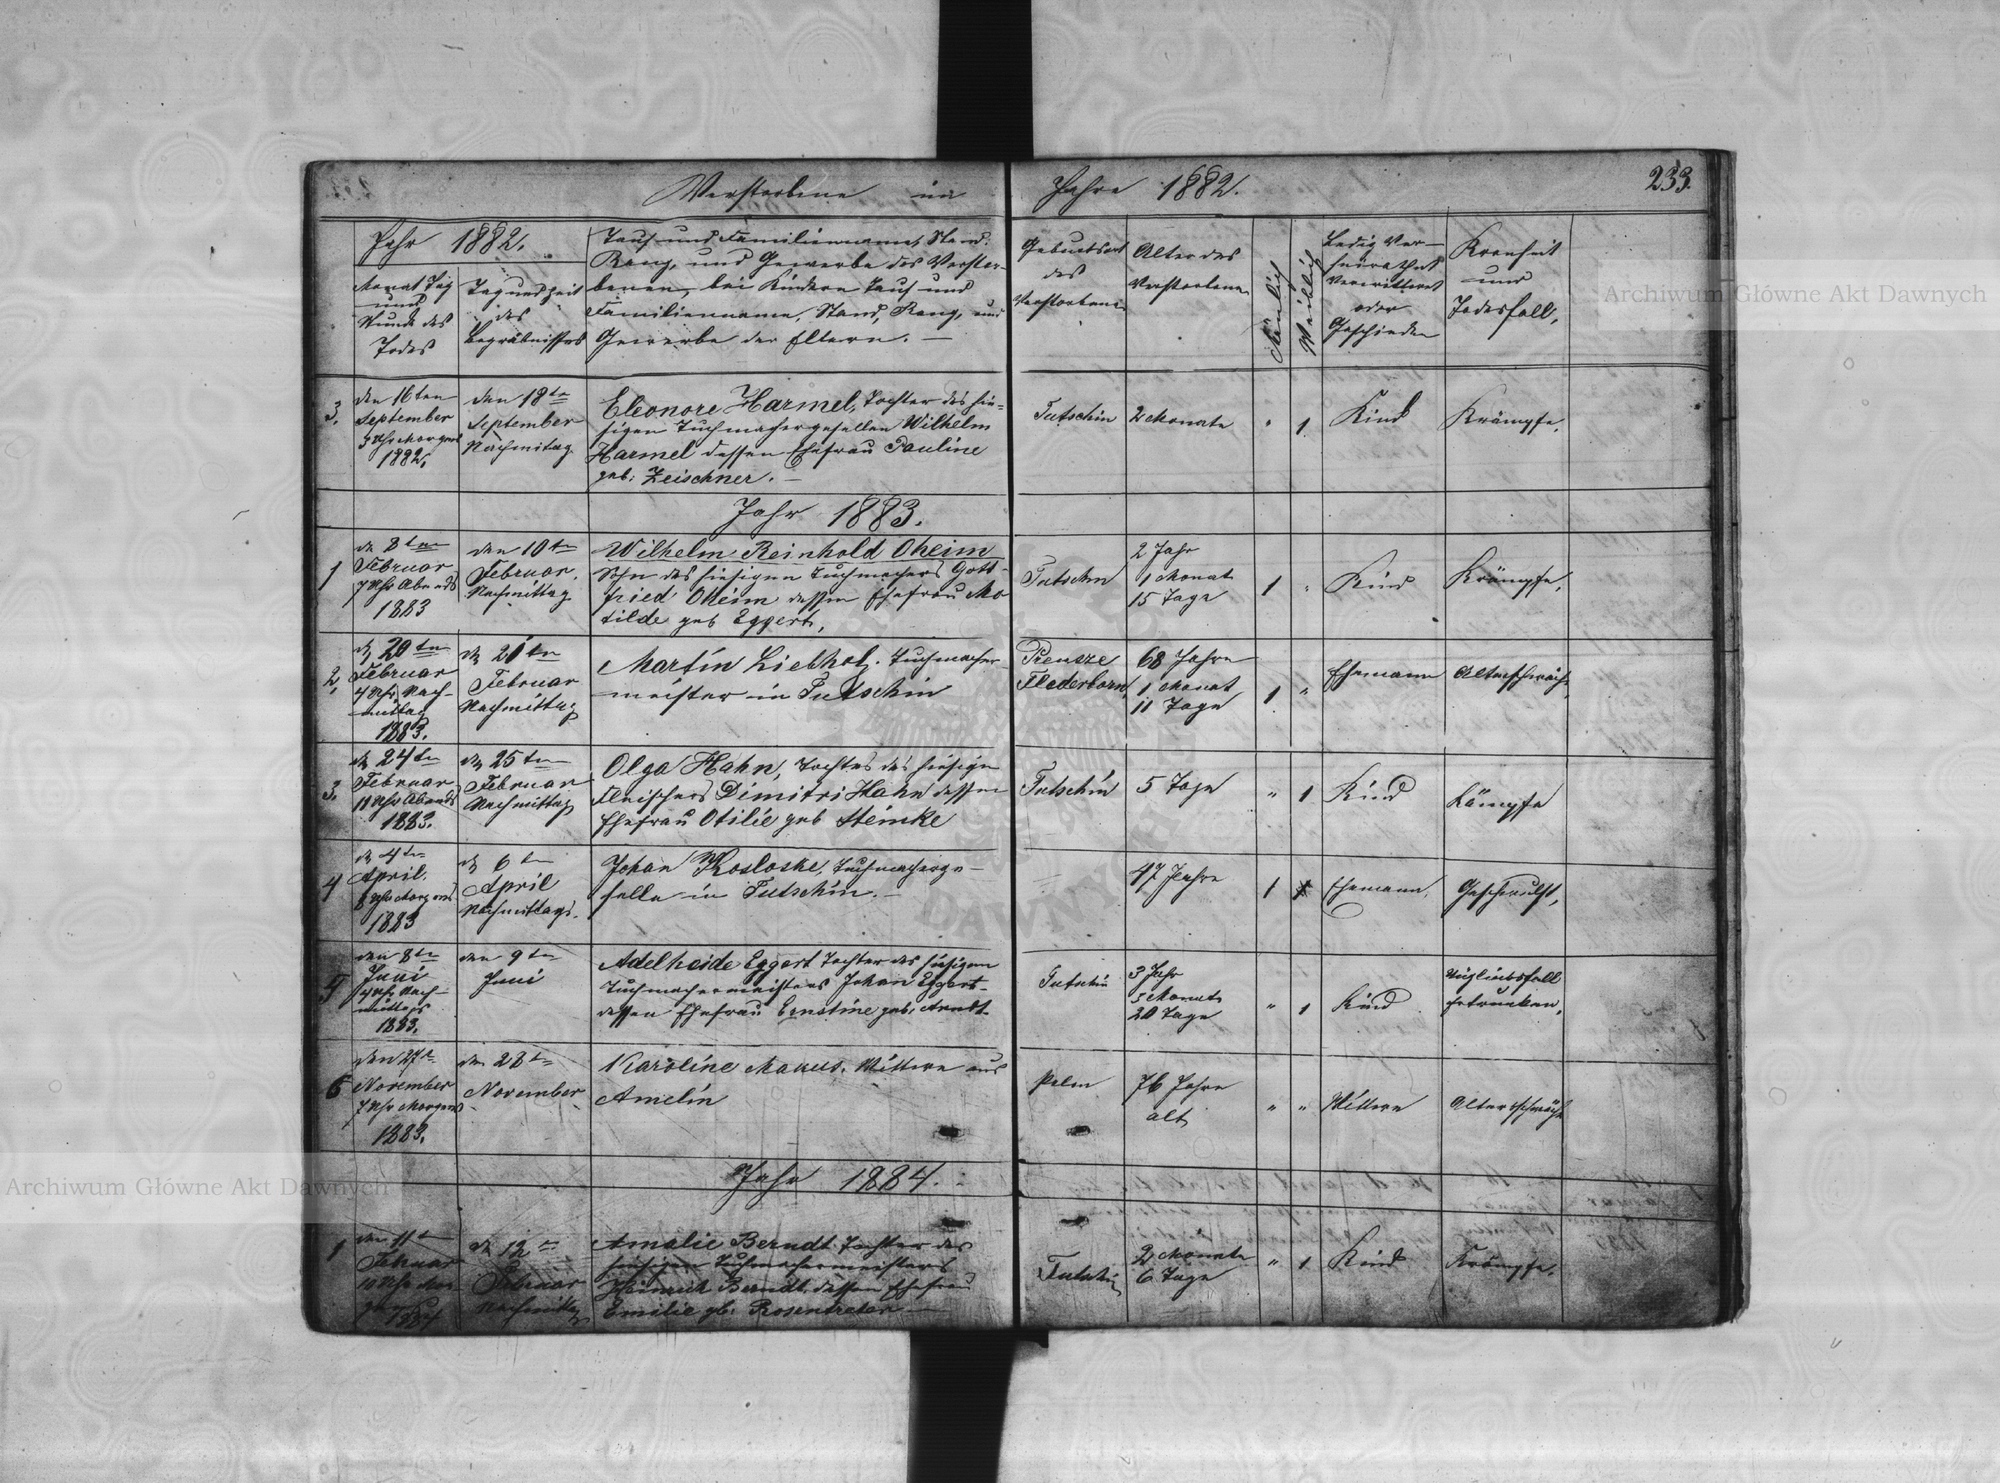 Verstorbene im Jahre 1882.
233.
Jahr 1882.
Monat Tag
und
Stunde des
Todes
Tag und Zeit
des
Begräbnisses
Tauf und Familienname, Stand,
Rang, und Gewerbe des Verstor-
benen, bei Kindern Tauf und
Familienname, Stand, Rang, und
Gewerbe der Eltern. —
Geburtsort
des
Verstorbenen
Alter des
Verstorbenen
Mänlich
Weiblich
Ledig Ver-
heirathet
Verwittwet
oder
Geschieden
Krankheit
und
Todesfall,
3.
den 16ten
September
Uhr Morgens
1882.
den 18ten
September
Nachmitag.
Eleonore Harmel, Tochter des hie-
sigen Tuchmachergesellen Wilhelm
Harmel dessen Ehefrau Pauline
geb: Zeischner. —
Tutschin
2 Monate
" 1.
Kind
Krämpfe,
Jahr 1883.
1
d. 8ten
Februar
7 Uhr Abends
1883
den 10ten
Februar.
Nachmittag.
Wilhelm Reinhold Oheim
Sohn des hiesigen Tuchmachers Gott-
fried Oheim dessen Ehefrau Ma
tilde geb Eggert,
Tutschin
2 Jahr
1 Monat
15 Tage
1 "
Kind
Krämpfe,
2,
d. 20ten
Februar
4 Uhr Nach-
mittag
1883.
d. 21ten
Februar
Nachmittag
Martin Liebholz. Tuchmacher
meister in Tutschin
Preusze
Flederborn,
68 Jahre
1 Monat
11 Tage
1 "
Ehemann
Altersschwäche
3.
d. 24ten
Februar
11 Uhr Abends
1883.
d. 25ten
Februar
Nachmittag
Olga Hahn, Tochter des hiesigen
Fleischers Dimitri Hahn dessen
Ehefrau Otilie geb Steinke
Tutschin
5 Tage
" 1
Kind
Kämpfe
4
d. 4ten
April.
8 Uhr Morgens
1883
d. 6ten
April
Nachmittags.
Johan Kosloske, Tuchmacherge-
selle in Tutschin. —
47 Jahre
1
Ehemann,
Geschwulst,
5
den 8ten
Juni
4 Uhr Nach-
mittags
1883.
den 9ten
Juni
Adelheide Eggert Tochter des hiesigen
Tuchmachermeisters Johan Eggert-
dessen Ehefrau Ernstine geb. Arndt.
Tutschin
3 Jahr
5 Monate
20 Tage
" 1
Kind
Unglücksfall
ertrunken,
6
den 27t
November
7 Uhr Morgens
1883.
den 28ten
November
Karoline Manus. Wittwe aus
Amelin
76 Jahre
alt
" "
Wittwe
Altersschwäche
Jahr 1884.
1
den 11ten
Februar
10 Uhr Mor
gens
1884
d. 12ten
Februar
Nachmittag
Amalie Berndt Tochter des
hiesigen Tuchmachermeisters
Heinrich Berndt, dessen Ehefrau
Emilie gb. Rosentreter —
Tutschin
2 Monate
6 Tage
" 1
Kind
Krämpfe.
Archiwum Główne Akt Dawnych
Archiwum Główne Akt Dawnych